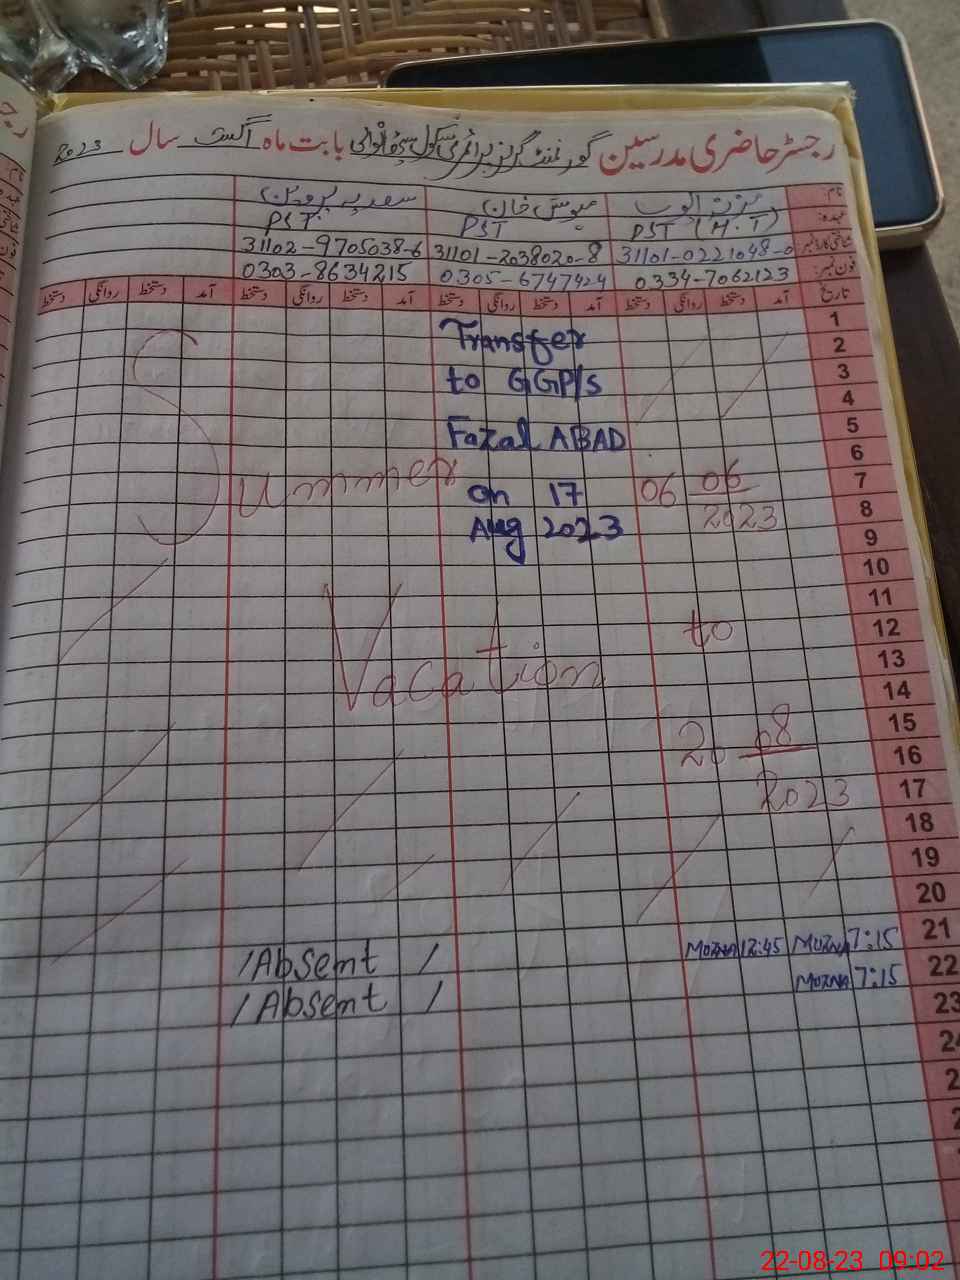 رجسٹر حاضری مدرسین گورنمنٹ گرلز پرائمری سکول بابت ماہ اگست سال 2023
نام: مہوش خان سعدیہ پروین
عہدہ: PST (H.T) PST PST
شناختی کارڈ نمبر 31101-0221048-0 31101-2038020-8 31102-9705038-6
فون نمبر: 0334-7062123 0305-6747424 0303-8634215
تاریخ آمد دستخط روانگی دستخط آمد دستخط روانگی دستخط آمد دستخط روانگی دستخط آمد دستخط روانگی دستخط
1
2
3
4
5
6
7
8
9
10
11
12
13
14
15
16
17
18
19
20
21
22
23
Transfer
to GGP/S
Fazal ABAD
on 17
Aug 2023
Summer
06 06
2023
Vacation to
20 08
2023
/Absent / MOZNA 12:45 MOZNA 7:15
/Absent / MOZNA 7:15
22-08-23 09:02